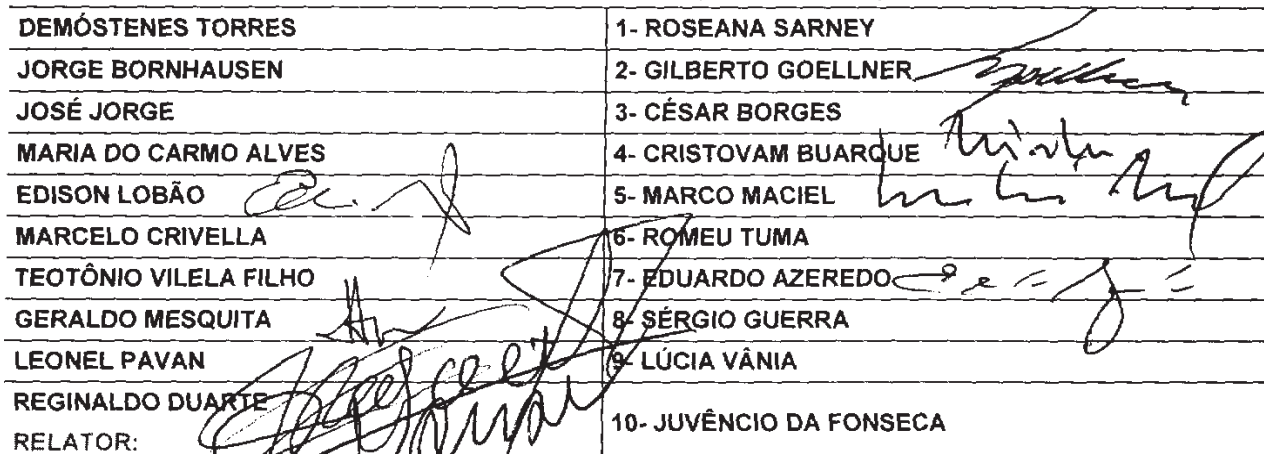 DEMÓSTENES TORRES 1- ROSEANA SARNEY
JORGE BORNHAUSEN 2- GILBERTO GOELLNER
JOSÉ JORGE 3- CÉSAR BORGES
MARIA DO CARMO ALVES 4- CRISTOVAM BUARQUE
EDISON LOBÃO 5- MARCO MACIEL
MARCELO CRIVELLA 6- ROMEU TUMA
TEOTÔNIO VILELA FILHO 7- EDUARDO AZEREDO
GERALDO MESQUITA 8- SÉRGIO GUERRA
LEONEL PAVAN 9- LÚCIA VÂNIA
REGINALDO DUARTE 10- JUVÊNCIO DA FONSECA
RELATOR: